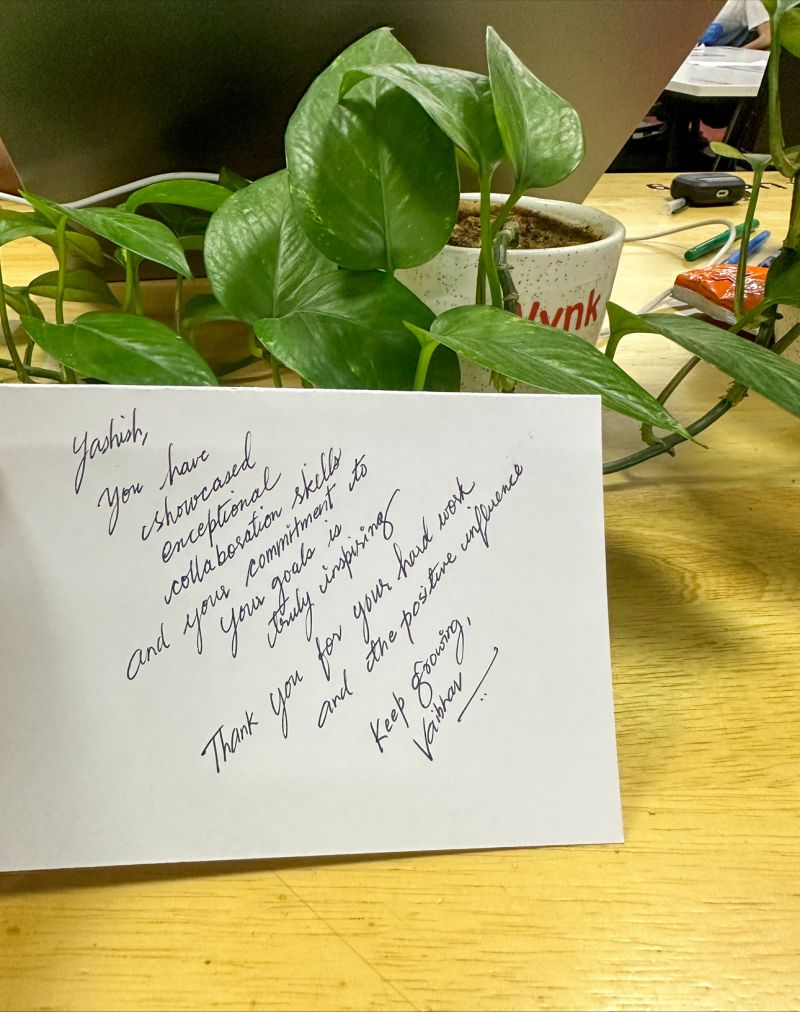 Yashish,
You have
showcased
exceptional
collaboration skills
and your commitment to
your goals is
truly inspiring
Thank you for your hard work
and the positive influence
Keep growing,
Vaibhav